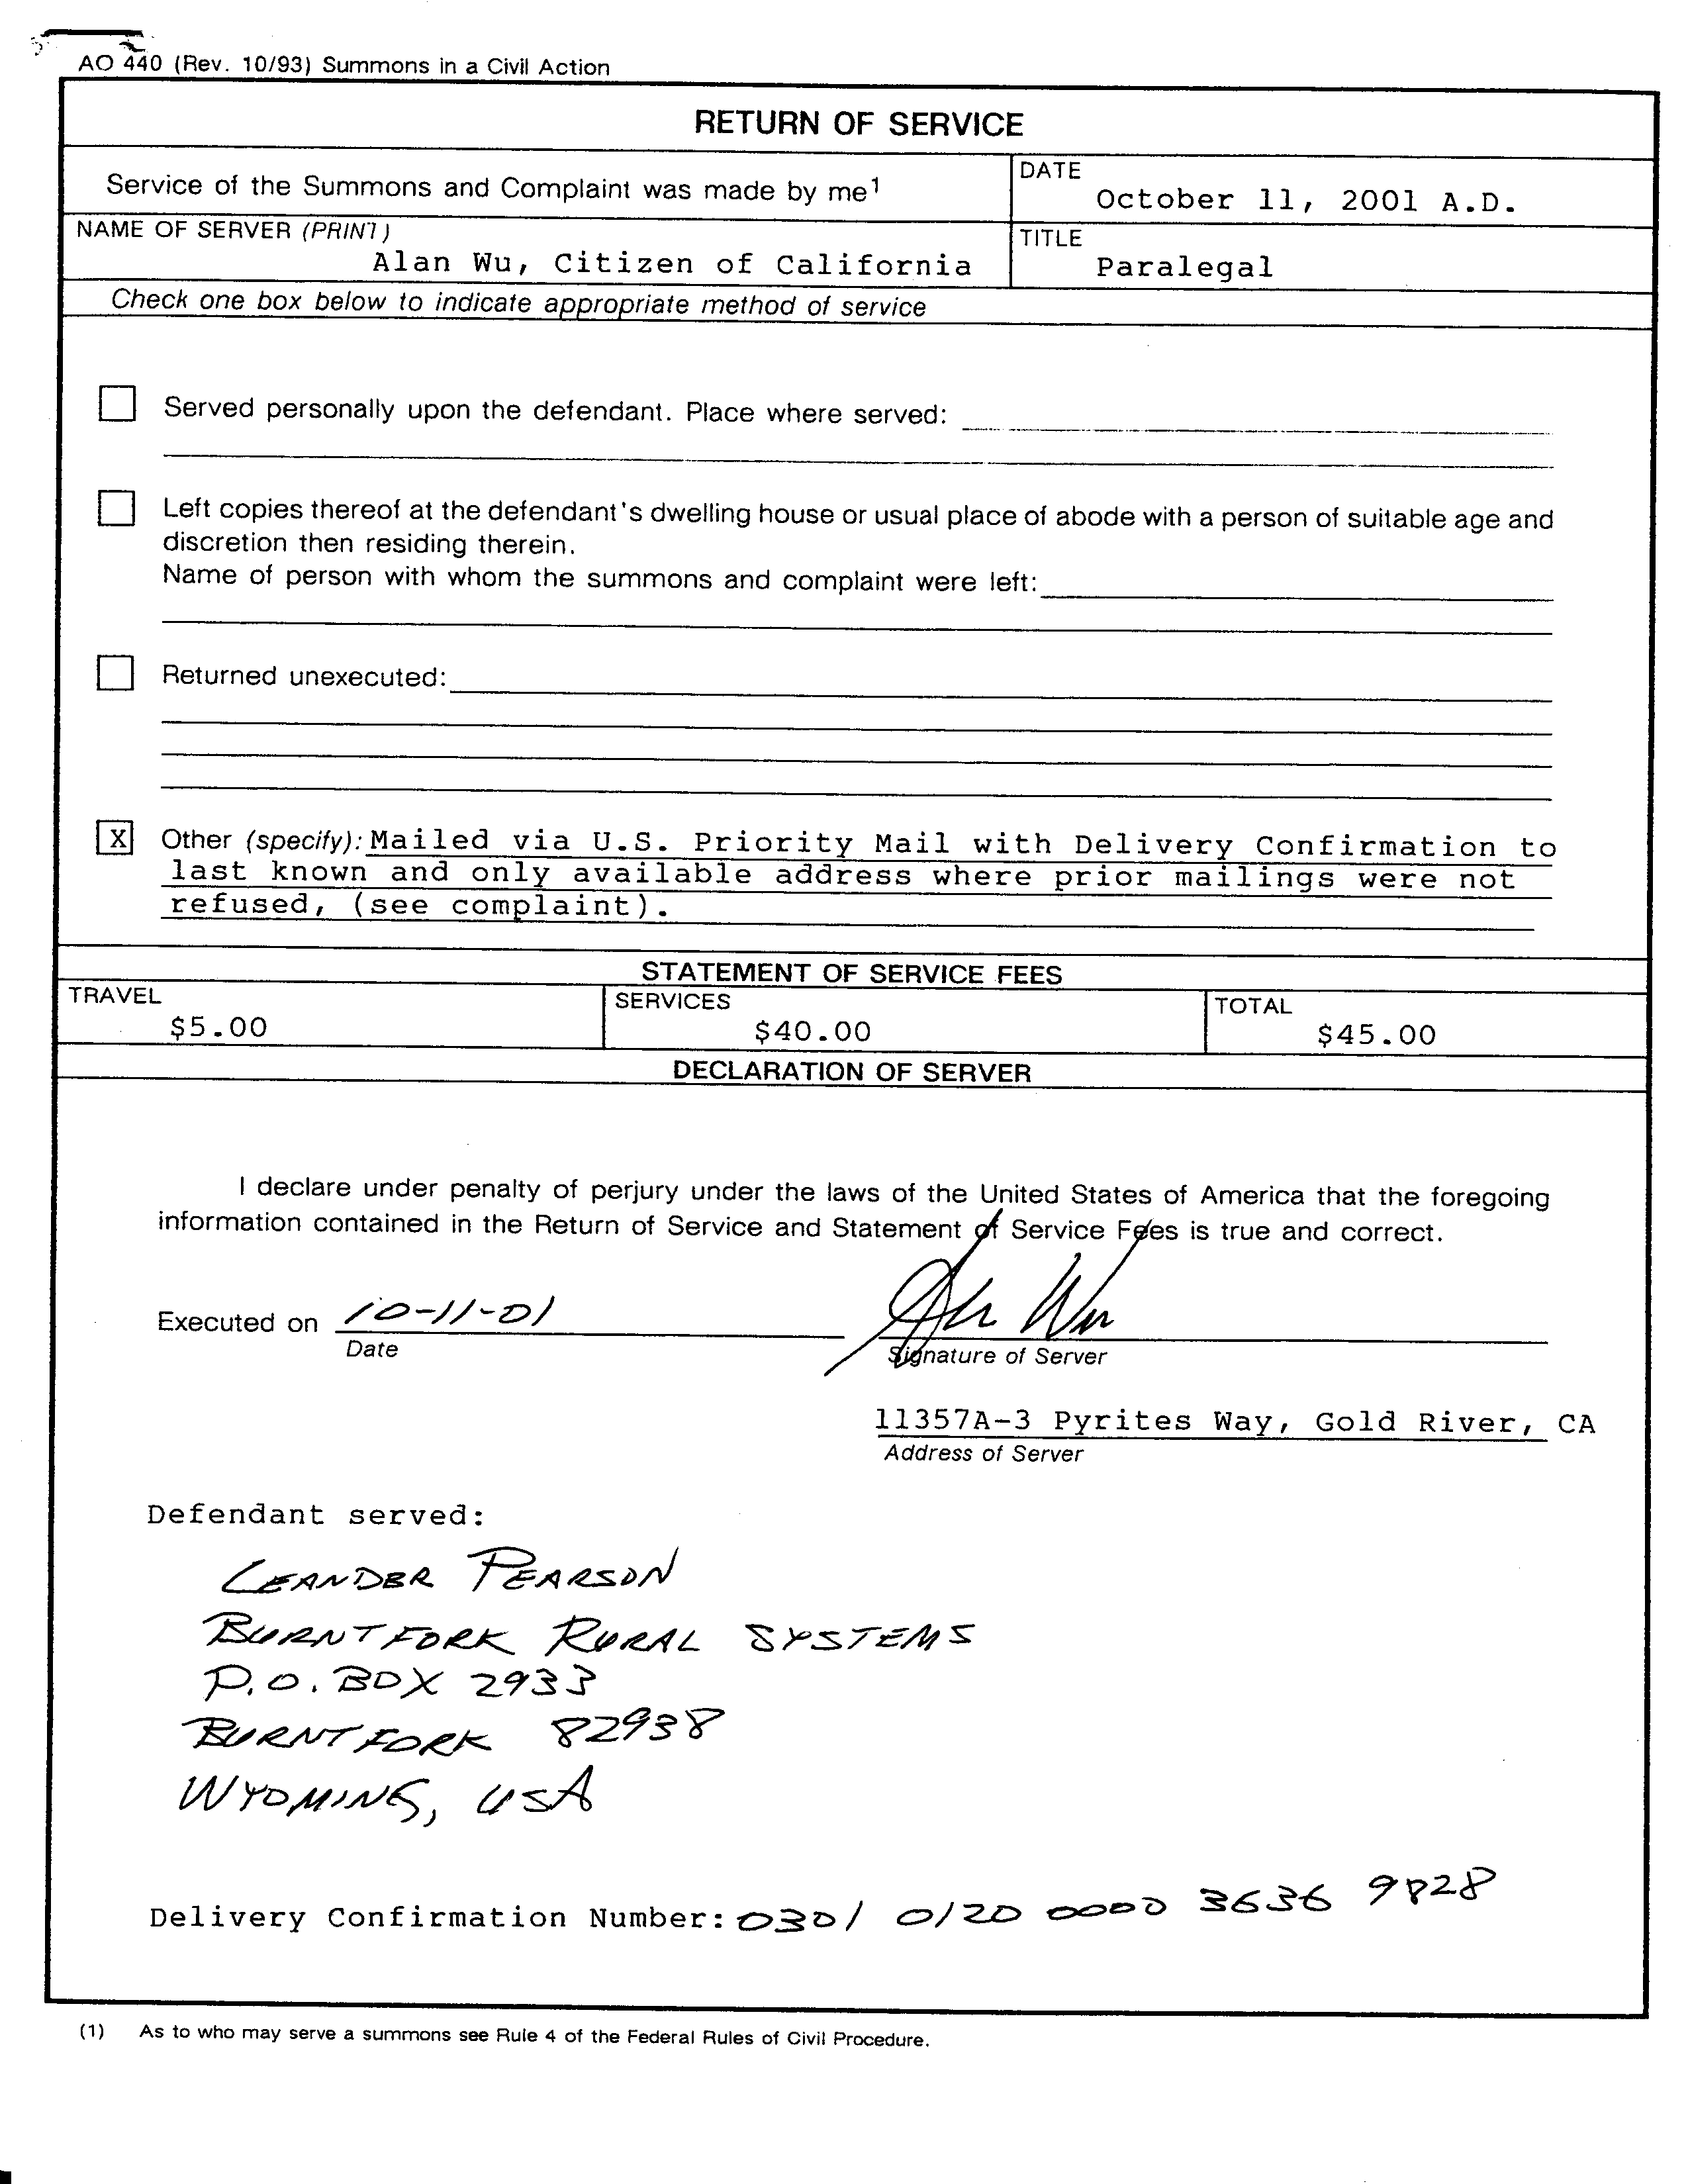 AO 440 (Rev. 10/93) Summons in a Civil Action
RETURN OF SERVICE
Service of the Summons and Complaint was made by me1
DATE
October 11, 2001 A.D.
NAME OF SERVER (PRINT)
Alan Wu, Citizen of California
TITLE
Paralegal
Check one box below to indicate appropriate method of service
Served personally upon the defendant. Place where served:
Left copies thereof at the defendant's dwelling house or usual place of abode with a person of suitable age and
discretion then residing therein.
Name of person with whom the summons and complaint were left:
Returned unexecuted:
X Other (specify): Mailed via U.S. Priority Mail with Delivery Confirmation to
last known and only available address where prior mailings were not
refused, (see complaint).
STATEMENT OF SERVICE FEES
TRAVEL
$5.00
SERVICES
$40.00
TOTAL
$45.00
DECLARATION OF SERVER
I declare under penalty of perjury under the laws of the United States of America that the foregoing
information contained in the Return of Service and Statement of Service Fees is true and correct.
Executed on 10-11-01
Alan Wu
Date
Signature of Server
11357A-3 Pyrites Way, Gold River, CA
Address of Server
Defendant served:
LEANDER PEARSON
BURNTFORK RURAL SYSTEMS
P.O. BOX 2933
BURNTFORK 82938
WYOMING, USA
Delivery Confirmation Number: 0301 0120 0000 3636 9828
(1) As to who may serve a summons see Rule 4 of the Federal Rules of Civil Procedure.